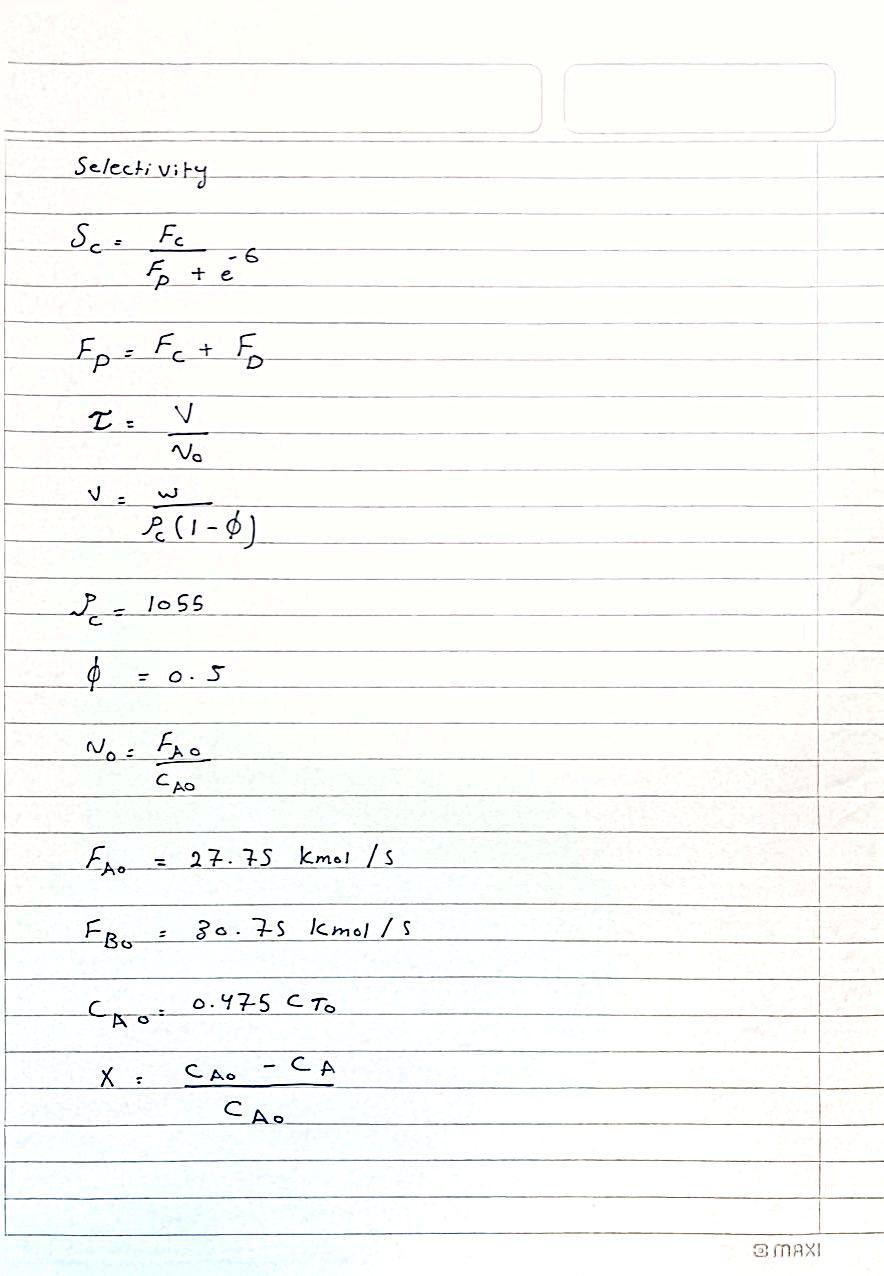 Selectivity
S_c = F_c / (F_p + e^-6)
F_p = F_c + F_D
τ = V / v_0
V = w / (ρ_c (1 - φ))
ρ_c = 1055
φ = 0.5
v_0 = F_A0 / C_A0
F_A0 = 27.75 kmol/s
F_B0 = 30.75 kmol/s
C_A0 = 0.475 C_T0
X = (C_A0 - C_A) / C_A0
MAXI